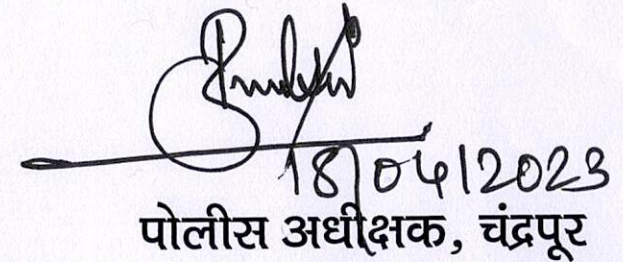 18/04/2023
पोलीस अधीक्षक, चंद्रपूर